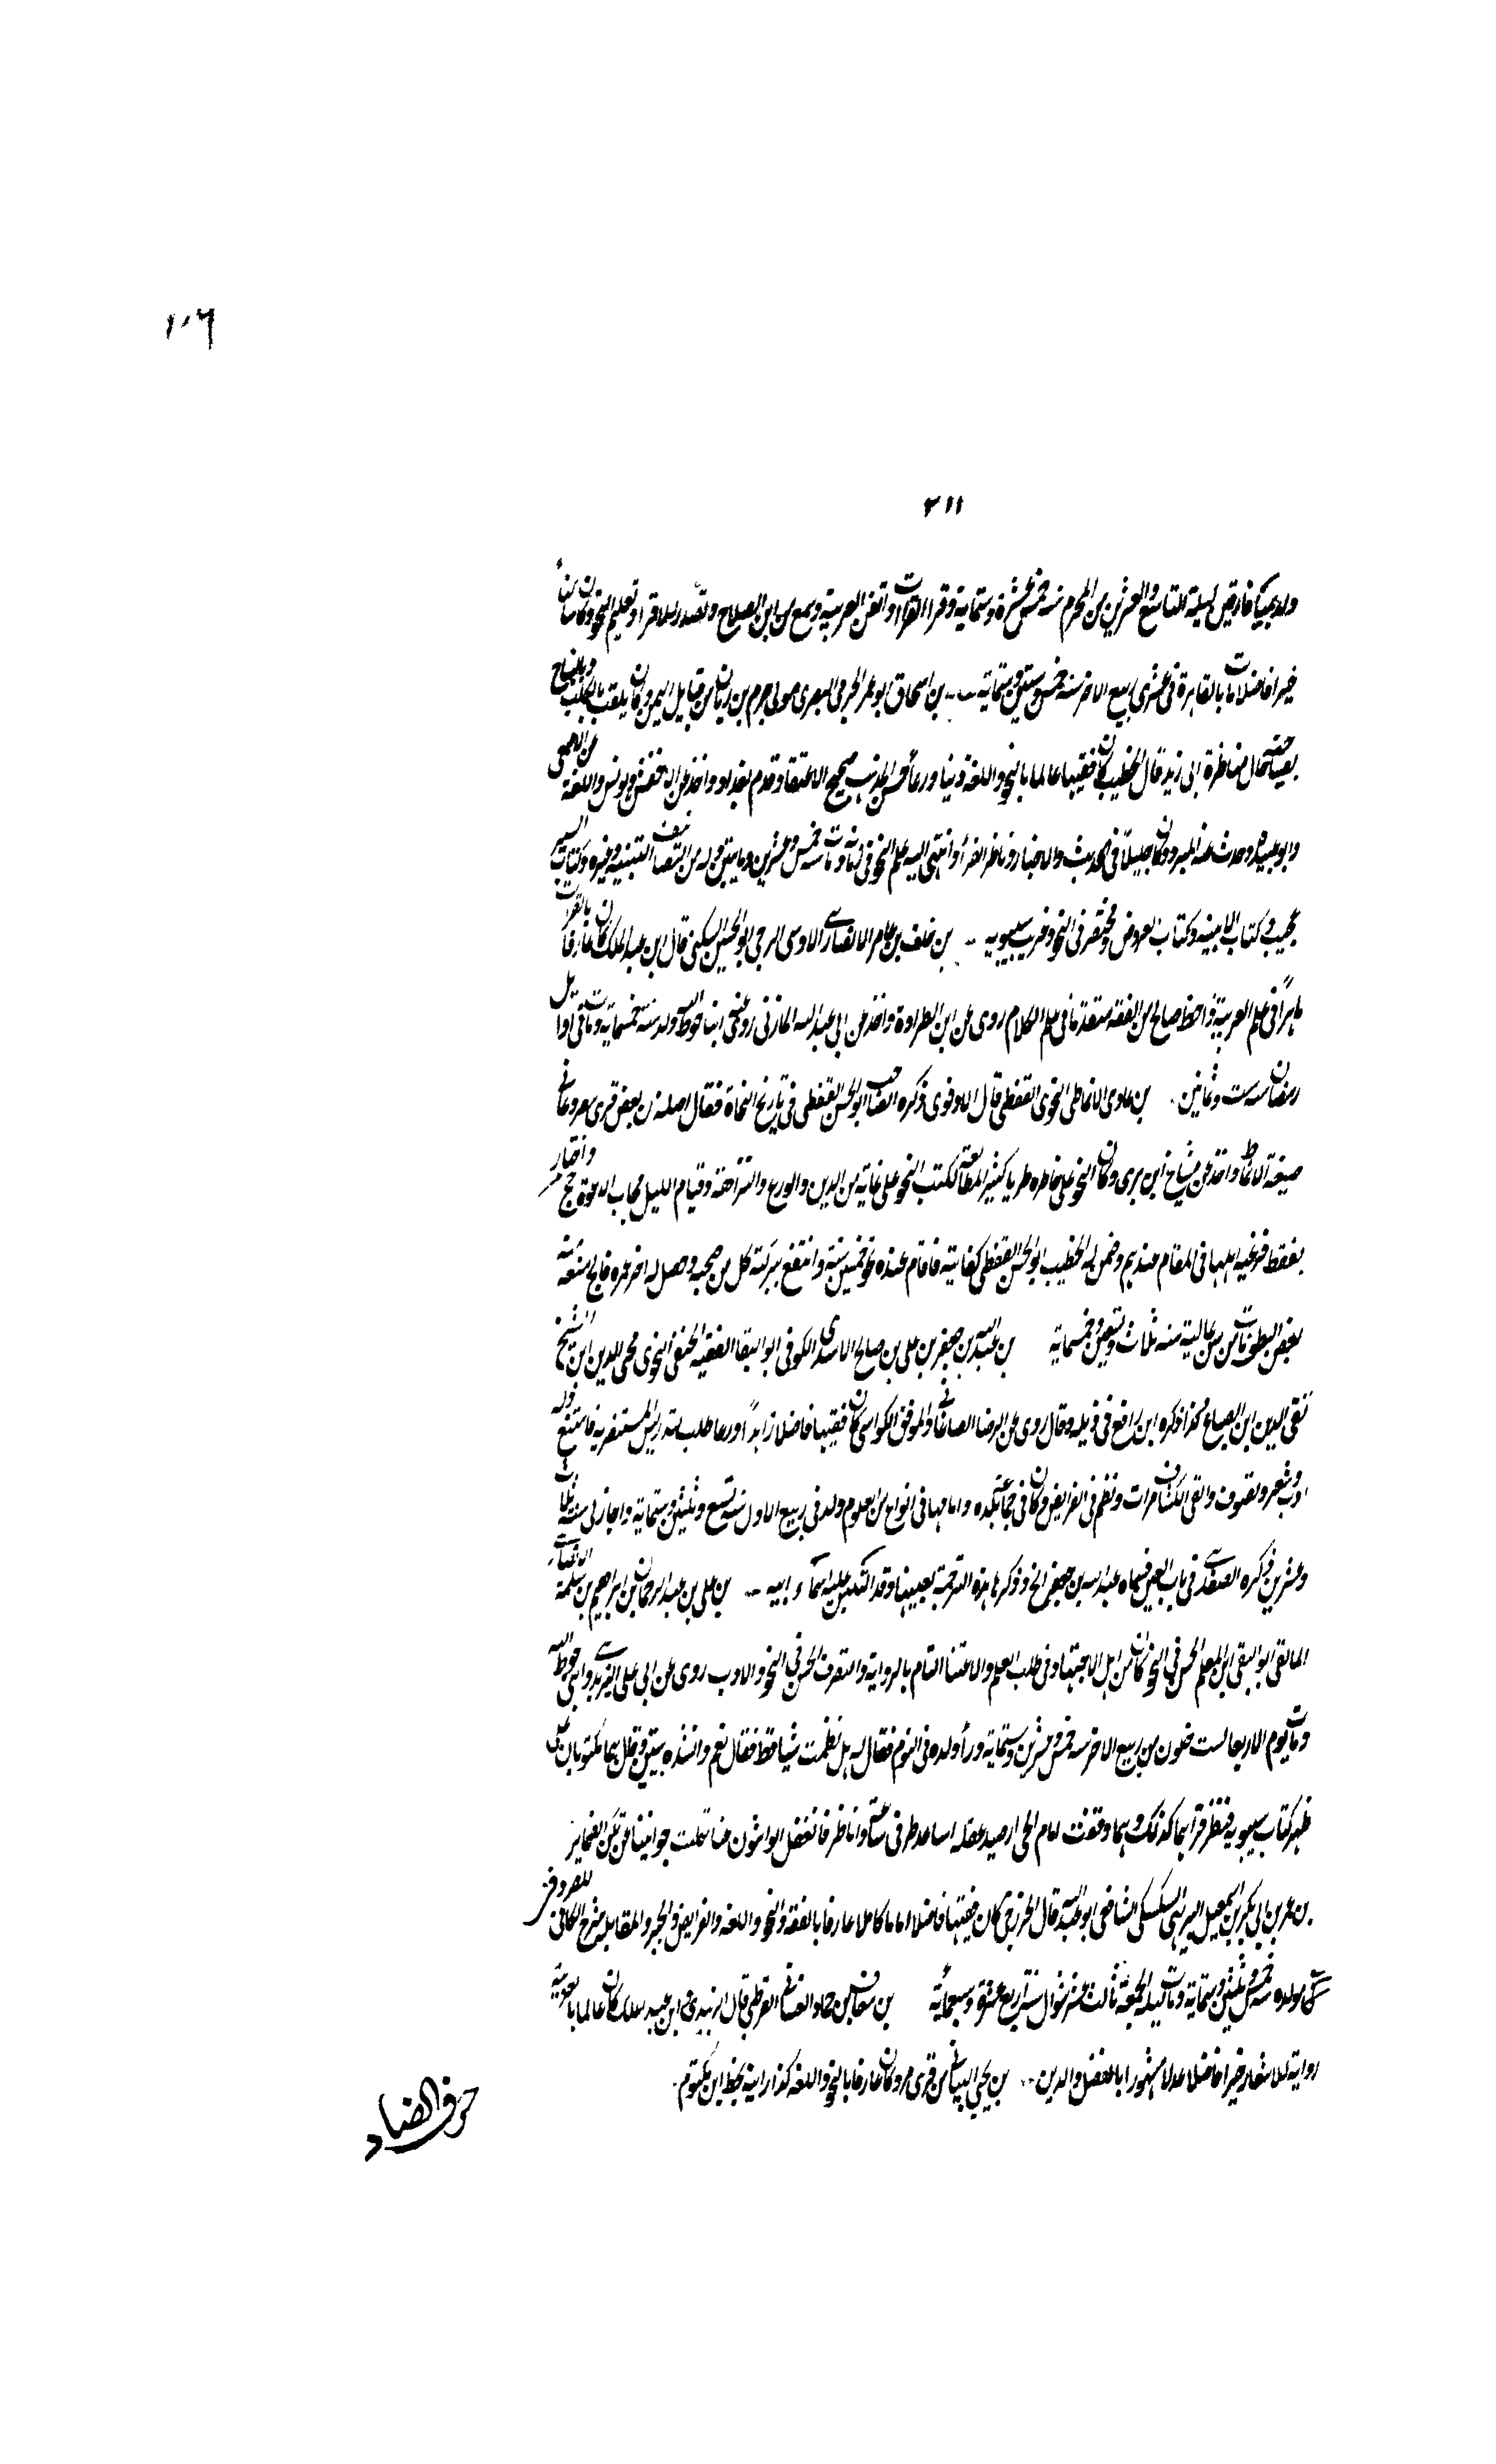 ١٠٦
٢١١
ولد بميافارقين ليلة التاسع والعشرين من المحرم سنة خمس عشرة وستماية وقرا القرات واتقن العربية وسمع من ابن الصلاح وتصدر للاقرا وتعليم النحو وكان ساكنا
خيرا فاضلا مات بالقاهرة في عشرى ربيع الاخر سنة خمس وستين وستماية بن اسحاق ابو عمر الجرمي البصرى مولى جرم بن زبان من قبايل اليمن وكان يلقب بالكلب وبالنباح
لصياحه حال مناظرة ابى زيد قال الخطيب كان فقيها عالما بالنحو واللغة دينا ورعا حسن المذهب صحيح الاعتقاد قدم بغداد واخذ عن الاخفش ويونس واللغة عن الاصمعى
وابو عبيدة وحدث عنه المبرد وكان جليلا في الحديث والاخبار وناظر الفرا وانتهى اليه علم النحو في زمانه ومات سنة خمس وعشرين ومايتين وله من التصانيف التنبيه وغيره وكتاب السير
عجيب وكتاب الابنية وكتاب العروض ومختصر في النحو وغريب سيبويه بن خلف بن عامر الانصارى الاوسى البرجى ابو الحسن السكنى قال ابن عبد الملك كان عارفا بالقرات
ماهرا في علم العربية ذا حظ صالح من الفقه متقدما في علم الكلام روى عن ابن الطراوة واخذ عن ابى عبد الله المازنى روى عنه ابنا حوط الله ولد سنة خمسماية ومات في اوايل
رمضان سنة ست وثمانين بن عادى الانماطى النحوى القفطى قال الادفوى ذكره الصاحب ابو الحسن القفطى في تاريخ النحاة فقال اصله من بعض قرى مصر وعانى
صنعة الانماط واخذ عن مشايخ ابن برى وكان النحو على خاطره طريا كثير المطالعة لكتب النحو على غاية من الدين والورع والنزاهة وقيام الليل مجاب الدعوة حج واختار
بقفط فرغبه اهلها في المقام عندهم وضمن له الخطيب ابو الحسن القفطى كفايته فاقام عنده نحو خمسين سنة وانتفع ببركته كل من صحبه وحصل له اخر عمره فالج منعه
بعض البطق مات من سن عالية سنة ثلاث وتسعين وخمسماية بن عبد الله بن جعفر بن على بن صالح الاسدى الكوفى ابو البقا الفقيه الحنفى النحوى محى الدين ابن الشيخ
تقى الدين ابن الصباغ هكذا ذكره ابن رافع في ذيله وقال روى عن الرضا الصاغانى والموفق الكواسى كان فقيها فاضلا زاهدا ورعا طلب لتدريس المستنصرية فامتنع وله
ادب وشعر وتصوف والقى الكشاف مرات ونظم في الفرايض وكان في جماعته بلده واماميا في انواع من العلوم ولد في ربيع الاول سنة تسع وثلثين وستماية واجاز لى سنة ثلاث
وعشرين ذكره الصفدى في باب العين فسماه عبد الله بن جعفر الخ وذكر هذه الترجمة بعينها وقد انعكس عليه اسماء ابيه بن على بن عبد الرحمان بن ابراهيم بن سلمة الانصارى
المالقى ابو التقى ابن المعلم الحسن في النحو كان من اهل الاجتهاد في طلب العلم والاعتنا التام بالرواية والتصرف الحسن في النحو والادب روى عن ابى على الرندى وابنى حوط الله
ومات يوم الاربعا لست خلون من ربيع الاخر سنة خمس وعشرين وستماية وراه ولده في النوم فقال له هل نظمت شيا قط فقال نعم وانشده بيتين وقال هما مكتوبان على
ظهر كتاب سيبويه فنظر فراهما كذلك وهما وقفت امام الحى ارصد غفلة اساعد طرفي ساعة واناظر فانغفل الواشون عنا تكلمت جوانبنا عن تكن الضماير
بن عمر بن ابى بكر بن اسمعيل البريهى السكسكى الشافعى ابو عبد الله قال الخزرجى كان فقيها فاضلا اماما كاملا عارفا بالفقه والنحو واللغة والفرايض والجبر والمقابلة شرح الكافى للصردفى
مولده سنة خمس وثلثين وستماية ومات ليلة الجمعة ثالث عشر شوال سنة اربع عشرة وسبعماية بن معافى بن حماد الغسانى القرطبى قال الزبيدى وابن عبد الملك كان عالما بالعربية
رواية للاشعار خيرا فاضلا عدلا مشهورا بالفضل والدين بن يحيى من قرى مرو كان عارفا بالنحو واللغة كذا رايته بخط ابن مكتوم
حرف الضاد